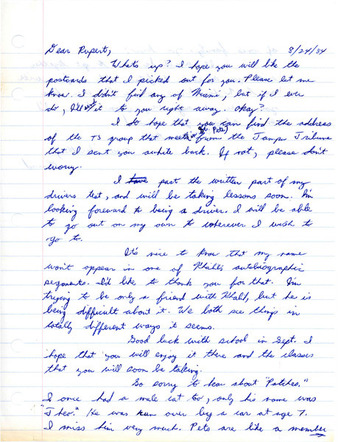 Dear Rupert, 8/24/84
What's up? I hope you will like the
postcards that I picked out for you. Please let me
know. I didn't find any of Miami, but if I ever
do, I'll it to you right away. Okay?
I do hope that you can find the address
of the TS group that meets from the Tampa Tribune
that I sent you awhile back. If not, please don't
worry.
I past the written part of my
drivers test, and will be taking lessons soon. I'm
looking forward to being a driver. I will be able
to go out on my own to wherever I wish to
go to.
It's nice to know that my name
won't appear in one of autobiographic
segments. I'd like to thank you for that. I'm
trying to be only a friend with but he is
being difficult about it. We both see things in
totally different ways it seems.
Good luck with school in Sept. I
hope that you will enjoy it there and the classes
that you will soon be taking.
So sorry to hear about "Patches."
I once had a male cat too, only his name was
He was run over by a car at age 7.
I miss him very much. Pets are like a member